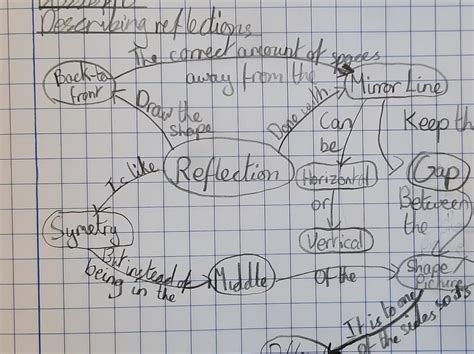 Describing reflections
The correct amount of spaces
away from the
Back-to
front
Mirror Line
Draw the
shape
Done with
Can
be
Keep th
Reflection
Is like
Horizontal
or
Vertical
Gap
Between
the
Symetry
But instead of
being in the
Middle
of the
Shape
Picture
It is to one
of the sides so its